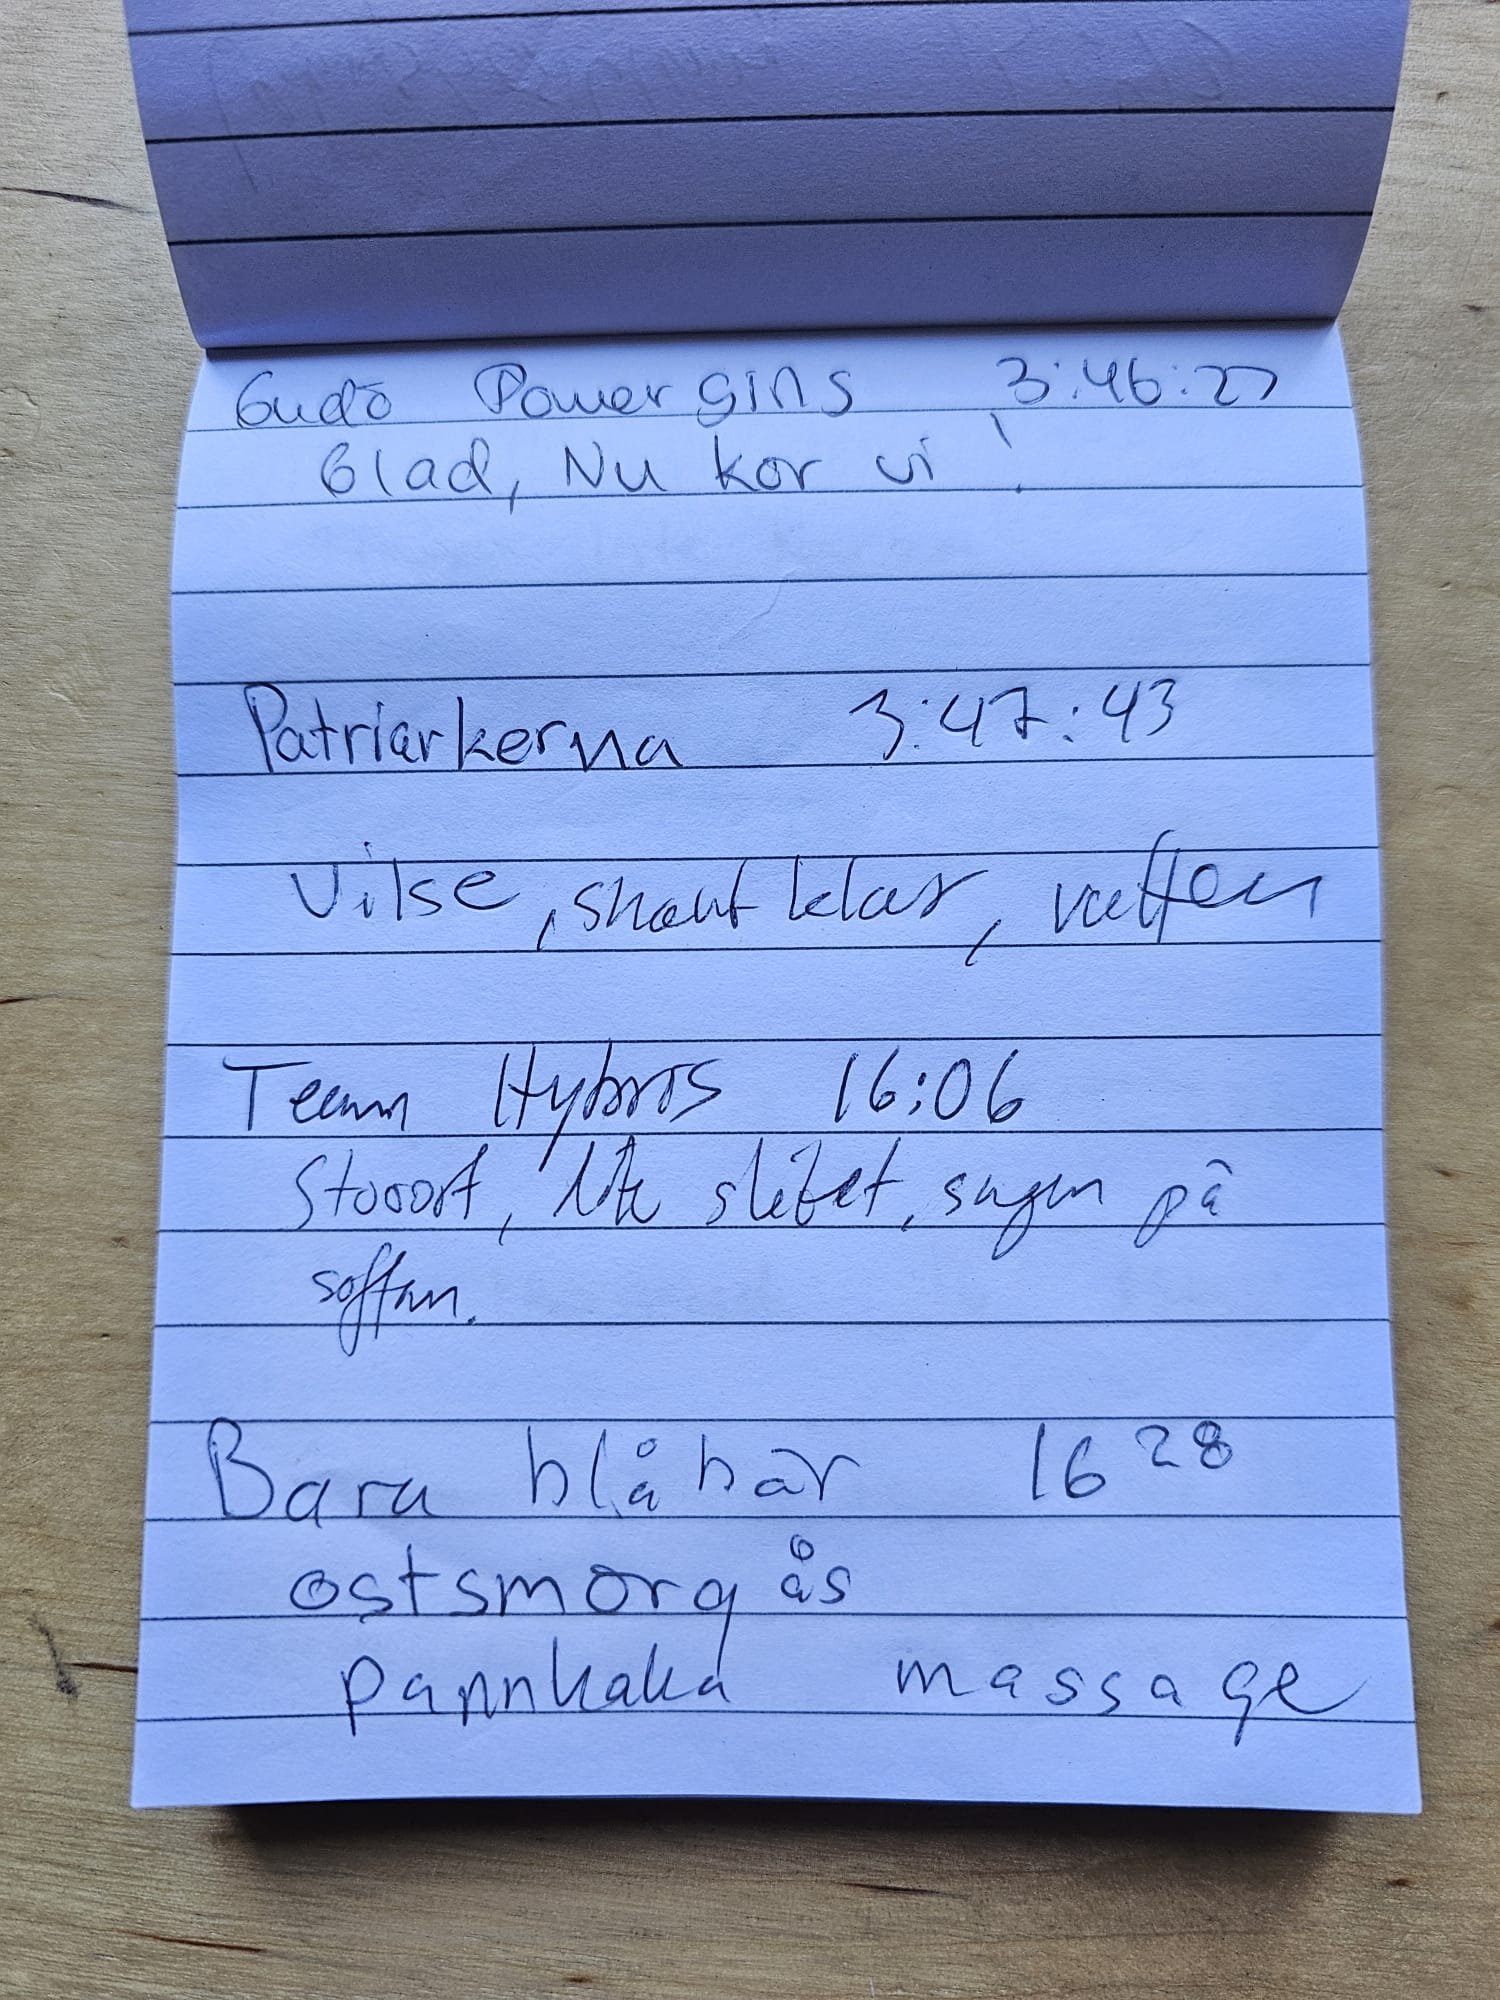 Gudö Powergins 3:46:27
Glad, Nu kör vi!
Patriarkerna 3:47:43
Vilse, snart klar, vatten
Team Hybris 16:06
Stooort, lite slitet, sugen på
soffan.
Bara blåbär 16 28
ostsmörgås
pannkaka massage